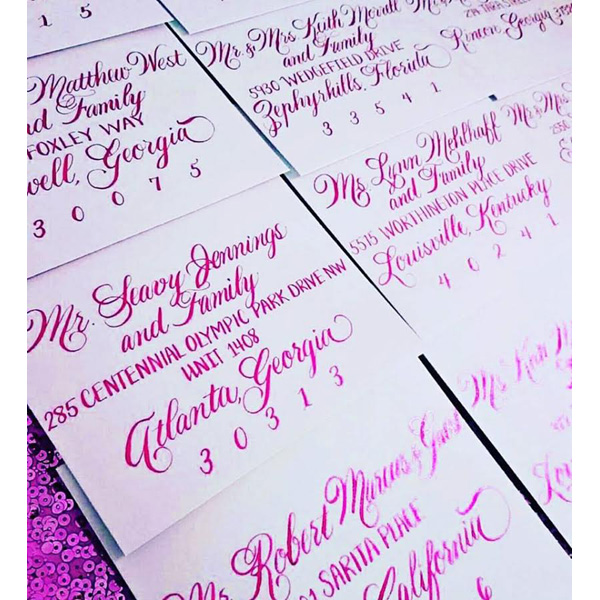 1 5
Matthew West
and Family
FOXLEY WAY
well, Georgia
3 0 0 7 5
Mr & Mrs Keith Morrill
and Family
5930 WEDGEFIELD DRIVE
Zephyrhills, Florida
3 3 5 4 1
Rincon, Georgia
Ms Lynn Mehlhaff
and Family
5515 WORTHINGTON PLACE DRIVE
Louisville, Kentucky
4 0 2 4 1
Mr & Mrs
Mr. Seavy Jennings
and Family
285 CENTENNIAL OLYMPIC PARK DRIVE NW
UNIT 1408
Atlanta, Georgia
3 0 3 1 3
Mr Robert Marcus & Guest
SARITA PLACE
California
6